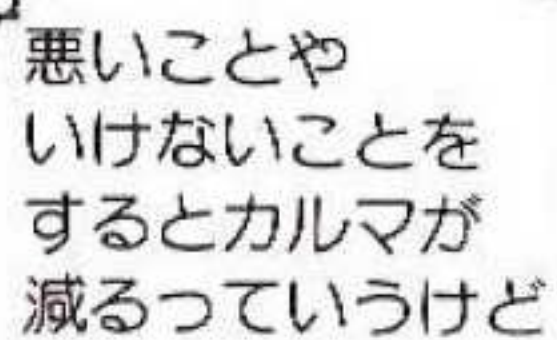 悪いことや
いけないことを
するとカルマが
減るっていうけど